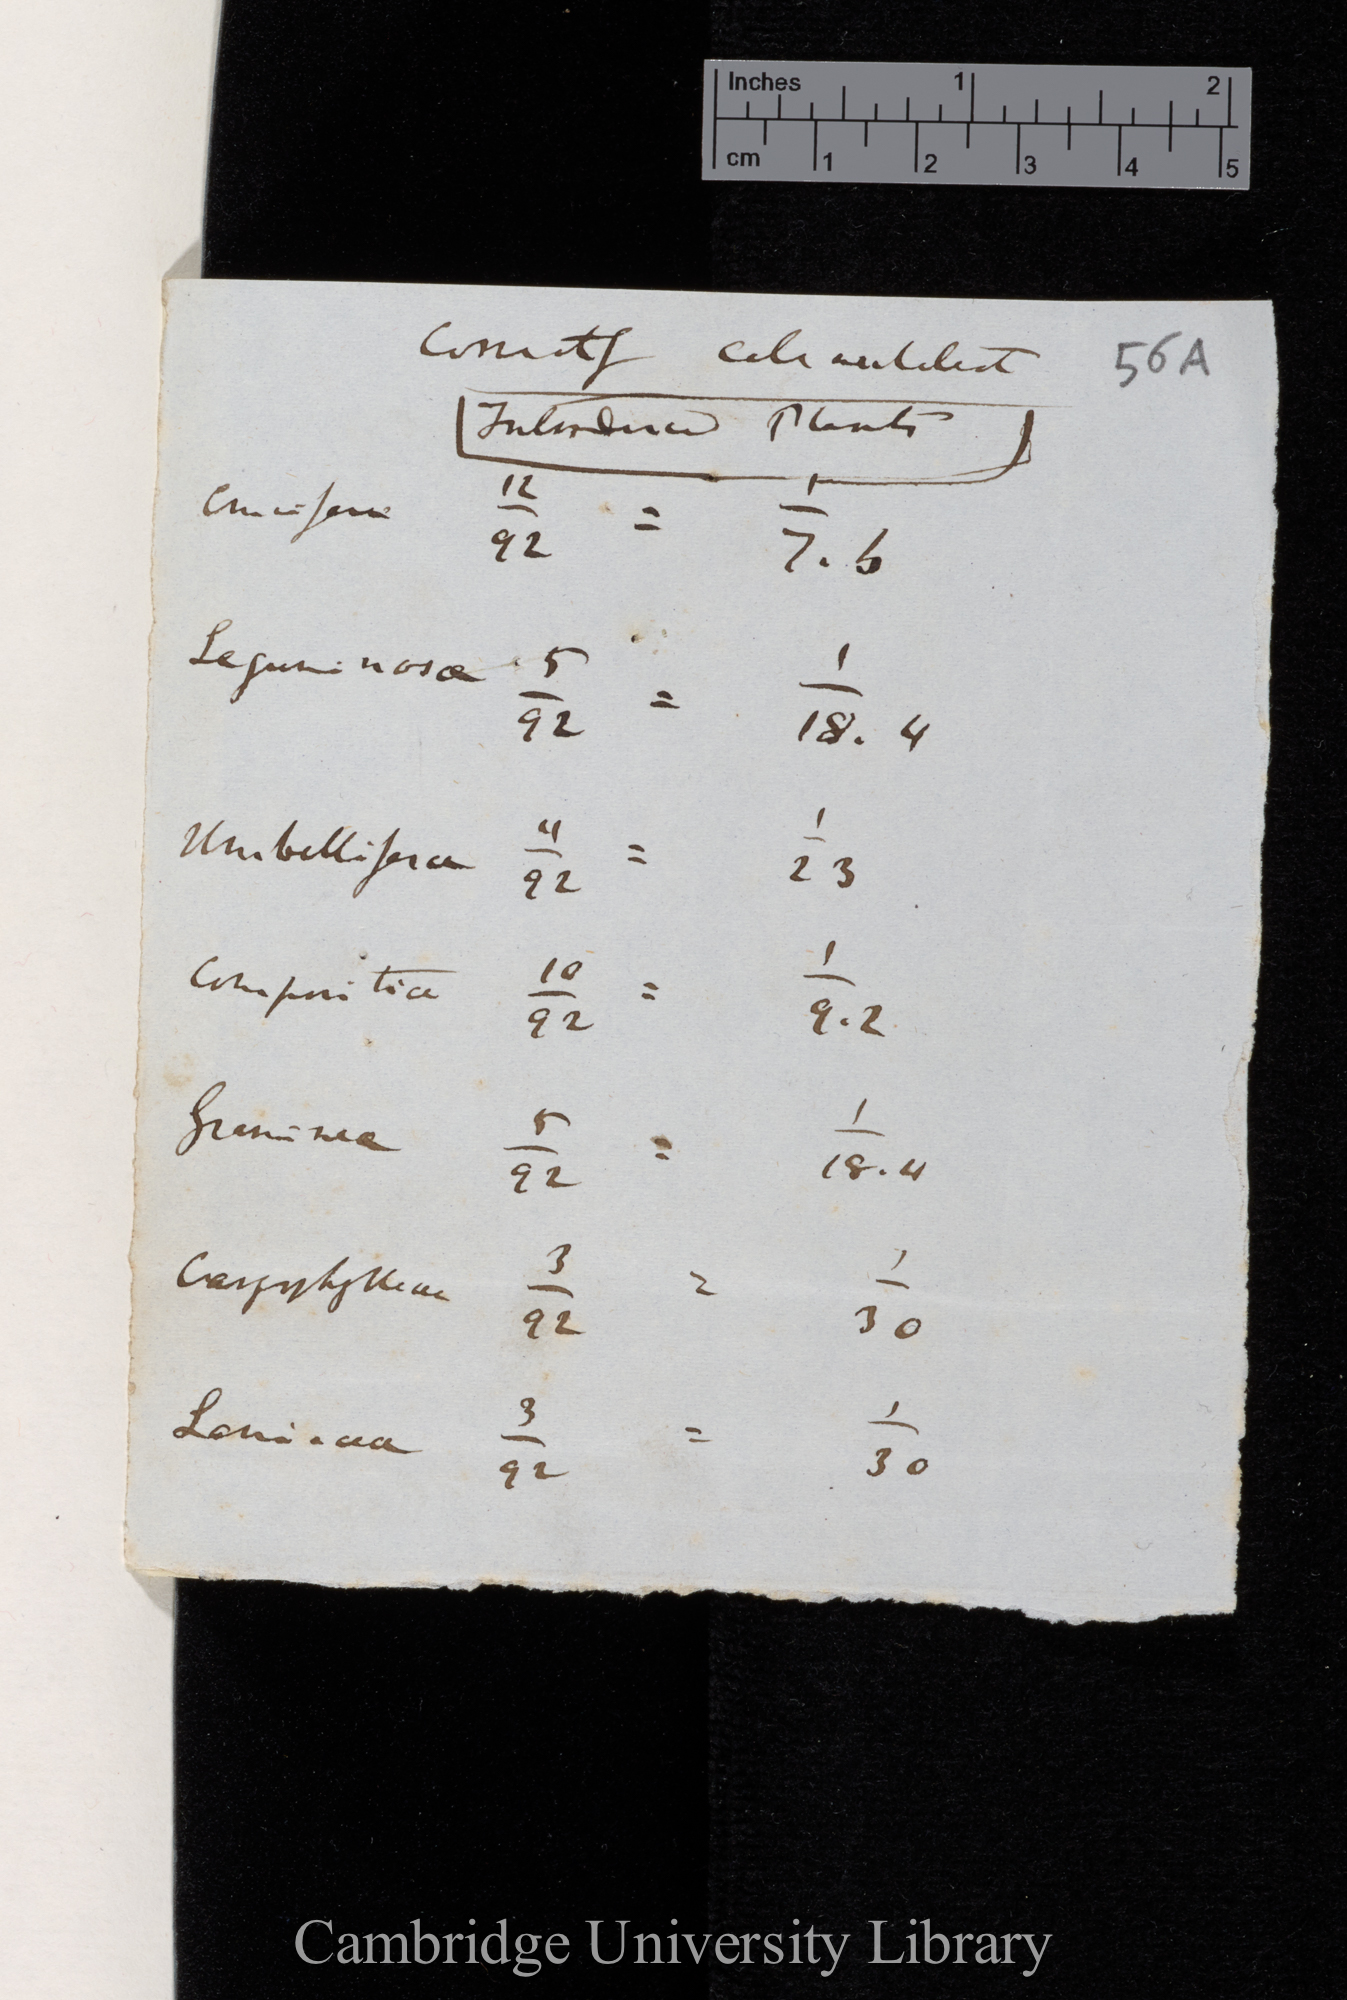 Inches 1 2
cm 1 2 3 4 5
56A
Correctly calculated
Introduced Plants
Cruciferæ 12/92 = 1/7.6
Leguminosæ 5/92 = 1/18.4
Umbelliferæ 4/92 = 1/23
Compositæ 10/92 = 1/9.2
Gramineæ 5/92 = 1/18.4
Caryophylleæ 3/92 = 1/30
3/92 = 1/30
Cambridge University Library